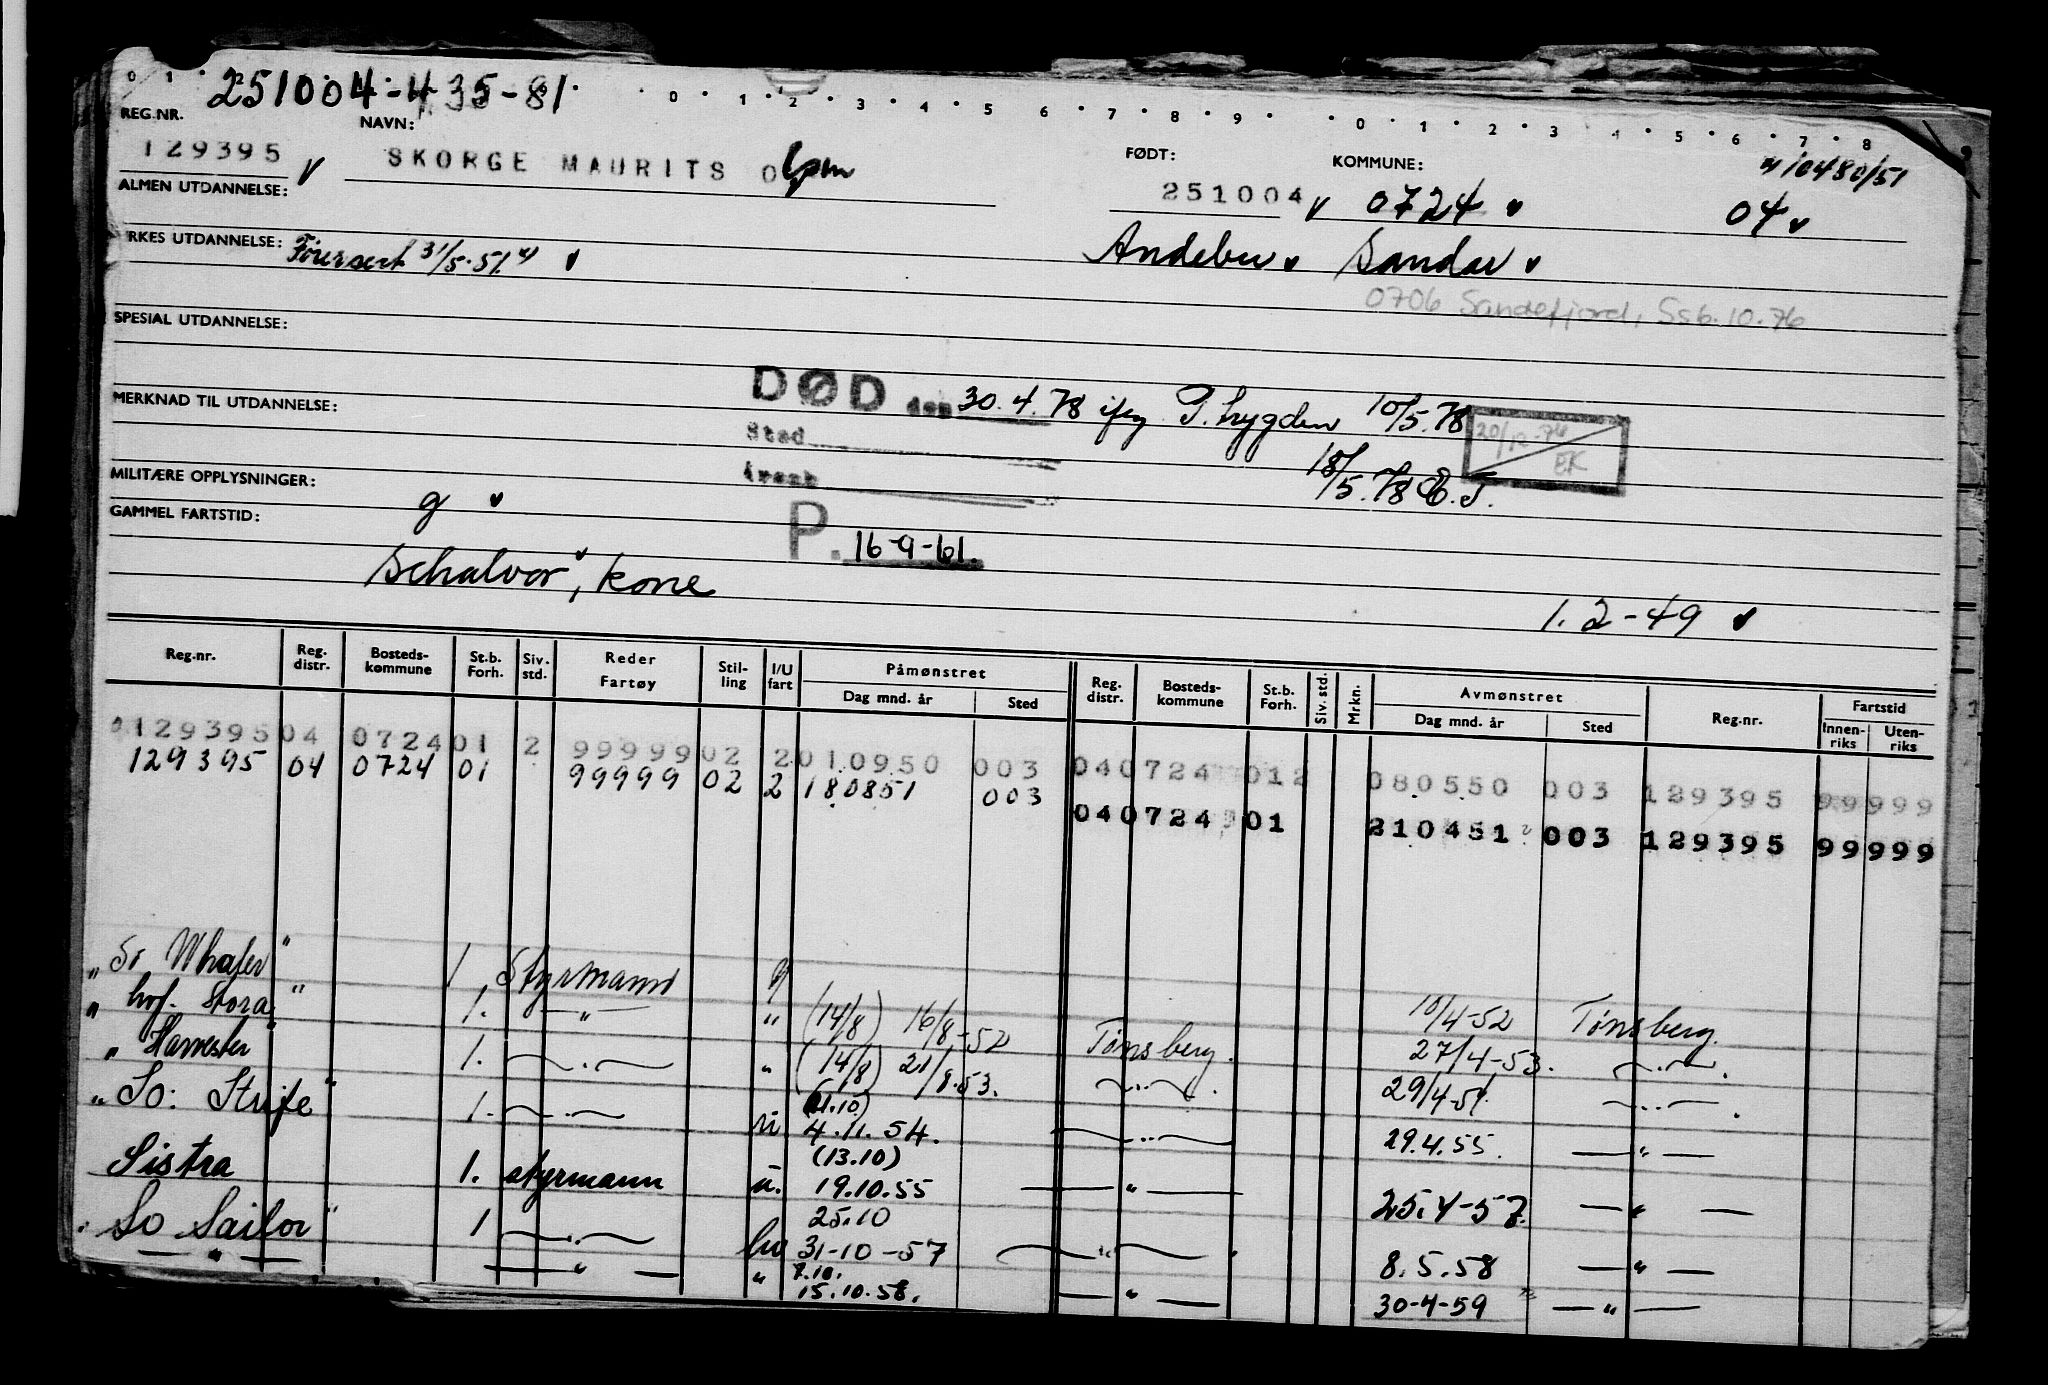 0 1 251004-435-81 0 1 2 3 4 5 6 7 8 9 0 1 2 3 4 5 6 7 8
REG.NR. NAVN: FØDT: KOMMUNE:
129395 v SKORGE MAURITS 251004 v 0724 v 04 v 10480/51
ALMEN UTDANNELSE:
Andebu v Sandar v
RKES UTDANNELSE: Førersert 31/5-51 v
0706 Sandefjord, Ssb. 10.76
SPESIAL UTDANNELSE:
DØD den 30.4.78 iføg T. trygden 10/5.78
MERKNAD TIL UTDANNELSE:
Sted
20/12-74
EK
18/5.78 E.T.
MILITÆRE OPPLYSNINGER:
g v
GAMMEL FARTSTID:
P. 16-9-61.
Schalvor, kone
1.2-49 v
Reg.nr. Reg. distr. Bosteds-kommune St.b. Forh. Siv. std. Reder Fartøy Stil-ling I/U fart Påmønstret Dag mnd. år Sted Reg. distr. Bosteds-kommune St.b. Forh. Siv. std. Mrkn. Avmønstret Dag mnd. år Sted Reg.nr. Fartstid Innen-riks Uten-riks
0129395 04 0724 01 2 99999 02 2 010950 003 04 0724 01 2 080550 003 129395 99 999
129395 04 0724 01 99999 02 2 180851 003 04 0724 01 210451 003 129395 99 999
" So Whaler " 1 Styrmann 10/4-52 Tønsberg.
" hof. Stora " 1. — " — " (14/8) 16/8-52 Tønsberg. 27/4-53. — " —
" Harvester 1. — " — " (14/8) 21/8.53. — " — 29/4-54. — " —
" So: Strife " 1. — " — (11.10) 4.11.54. — " — 29.4.55. — " —
Sistra 1. styrmann u. (13.10) 19.10.55 — " — 25.4-57. — " —
" So Sailor " 1 — " — hv 25.10 31-10-57 — " — 8.5.58 — " —
— " — — " — " 7.10. 15.10.58. — " — 30-4-59 — " —